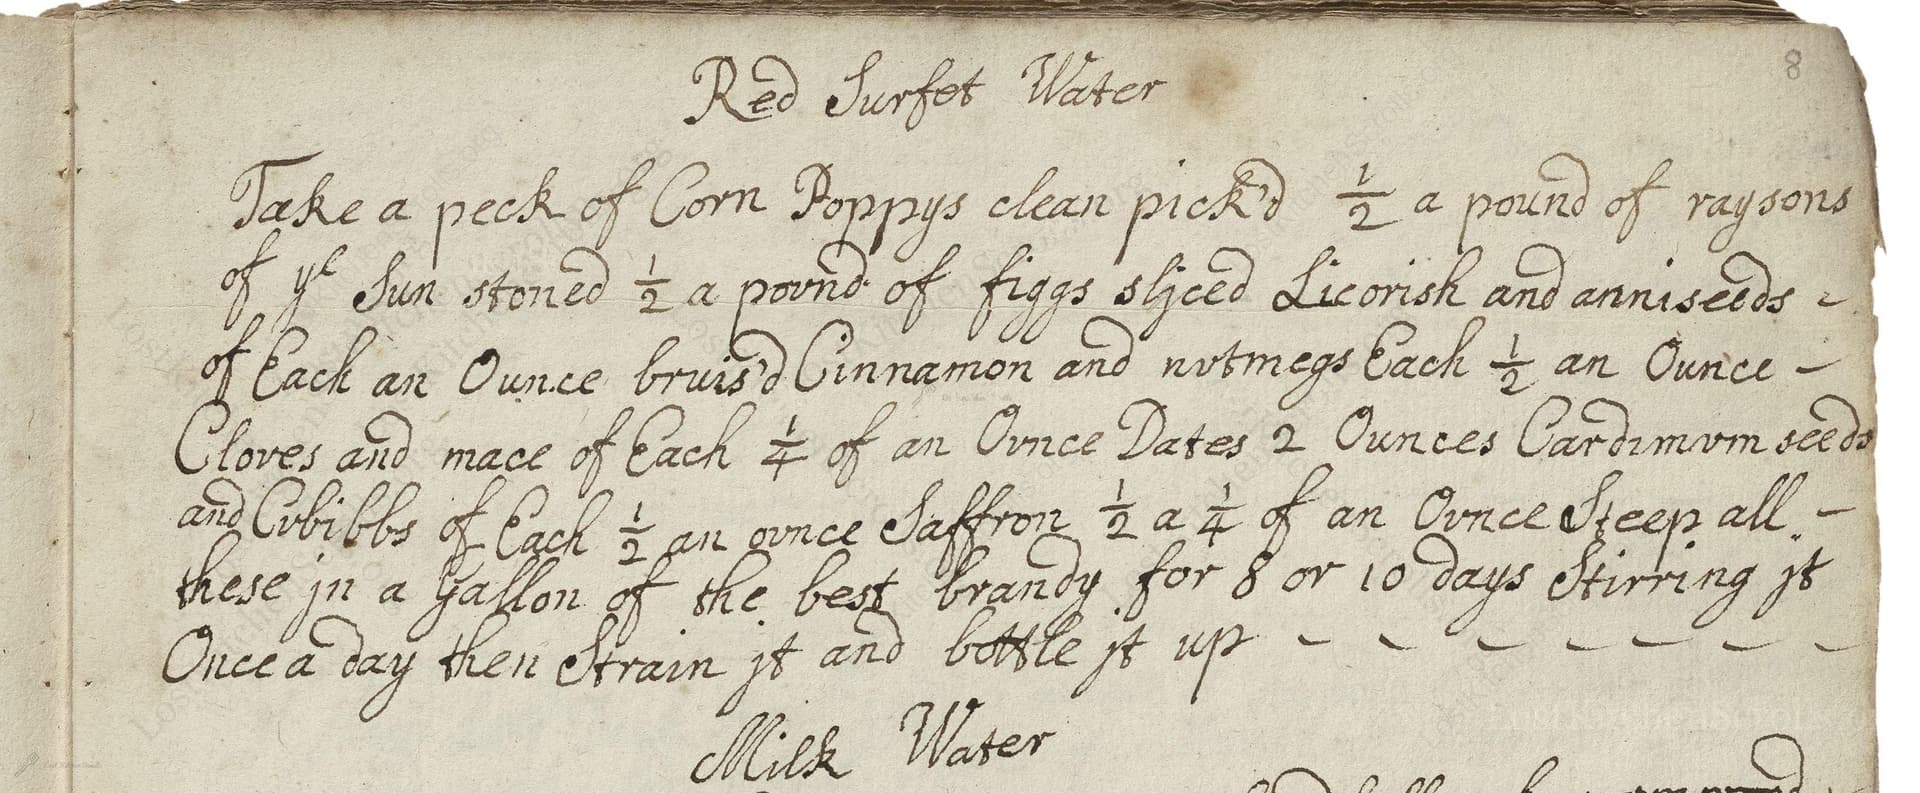 8
Red Surfet Water
Take a peck of Corn Poppys clean pick'd ½ a pound of raysons
of ye Sun stoned ½ a povnd of figgs sljced Licorish and anniseeds -
of Each an Ounce bruis'd Cinnamon and nvtmegs Each ½ an Ounce -
Cloves and mace of Each ¼ of an Ovnce Dates 2 Ounces Cardimvm seeds
and Cvbibbs of Each ½ an ovnce Saffron ½ a ¼ of an Ovnce Steep all -
these jn a Gallon of the best brandy for 8 or 10 days Stirring jt
Once a day then Strain jt and bottle jt up - - - - - - -
Milk Water